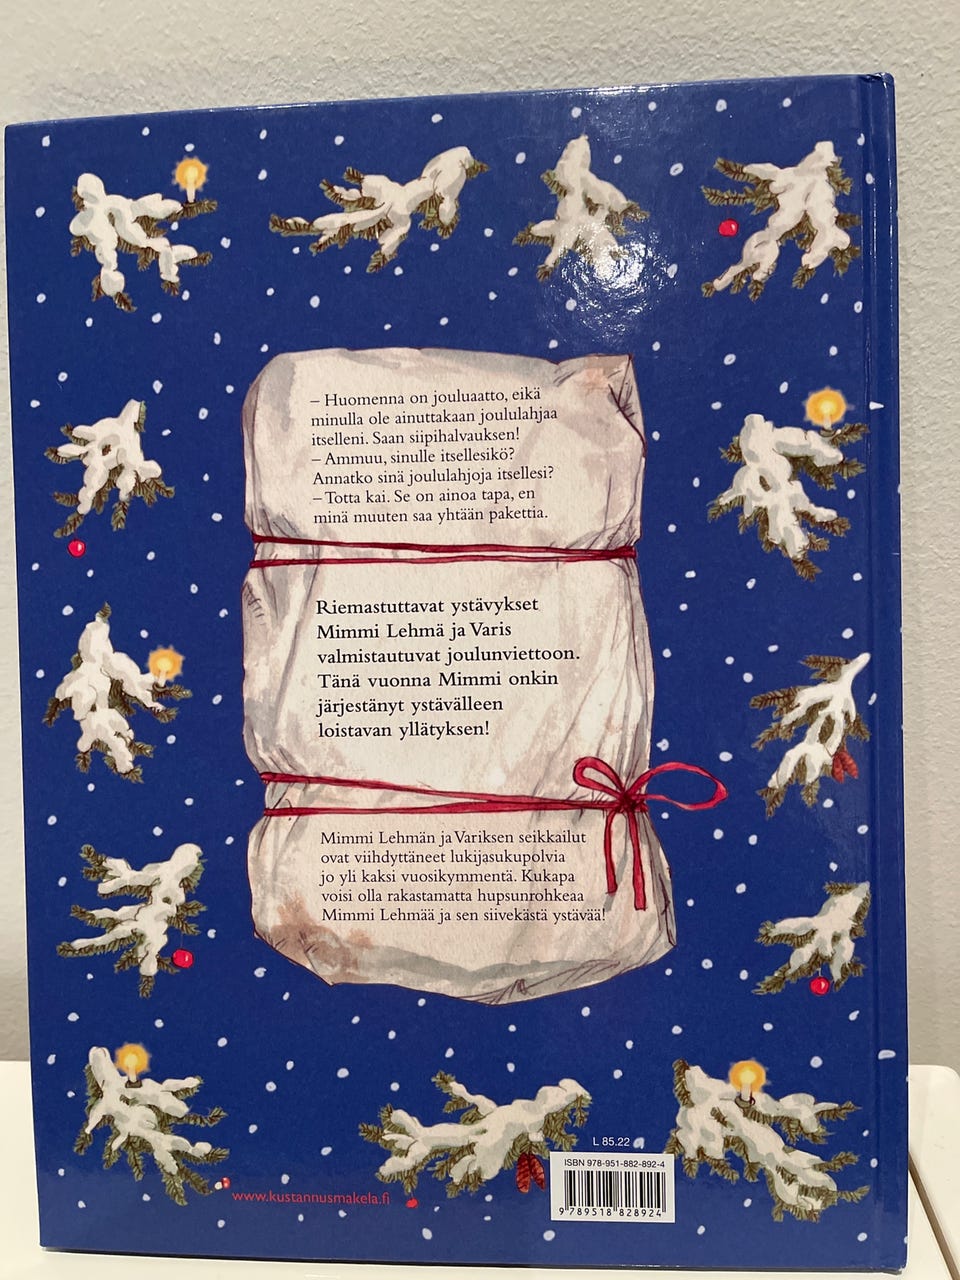 – Huomenna on jouluaatto, eikä
minulla ole ainuttakaan joululahjaa
itselleni. Saan siipihalvauksen!
– Ammuu, sinulle itsellesikö?
Annatko sinä joululahjoja itsellesi?
– Totta kai. Se on ainoa tapa, en
minä muuten saa yhtään pakettia.
Riemastuttavat ystävykset
Mimmi Lehmä ja Varis
valmistautuvat joulunviettoon.
Tänä vuonna Mimmi onkin
järjestänyt ystävälleen
loistavan yllätyksen!
Mimmi Lehmän ja Variksen seikkailut
ovat viihdyttäneet lukijasukupolvia
jo yli kaksi vuosikymmentä. Kukapa
voisi olla rakastamatta hupsunrohkeaa
Mimmi Lehmää ja sen siivekästä ystävää!
L 85.22
ISBN 978-951-882-892-4
9 789518 828924
www.kustannusmakela.fi